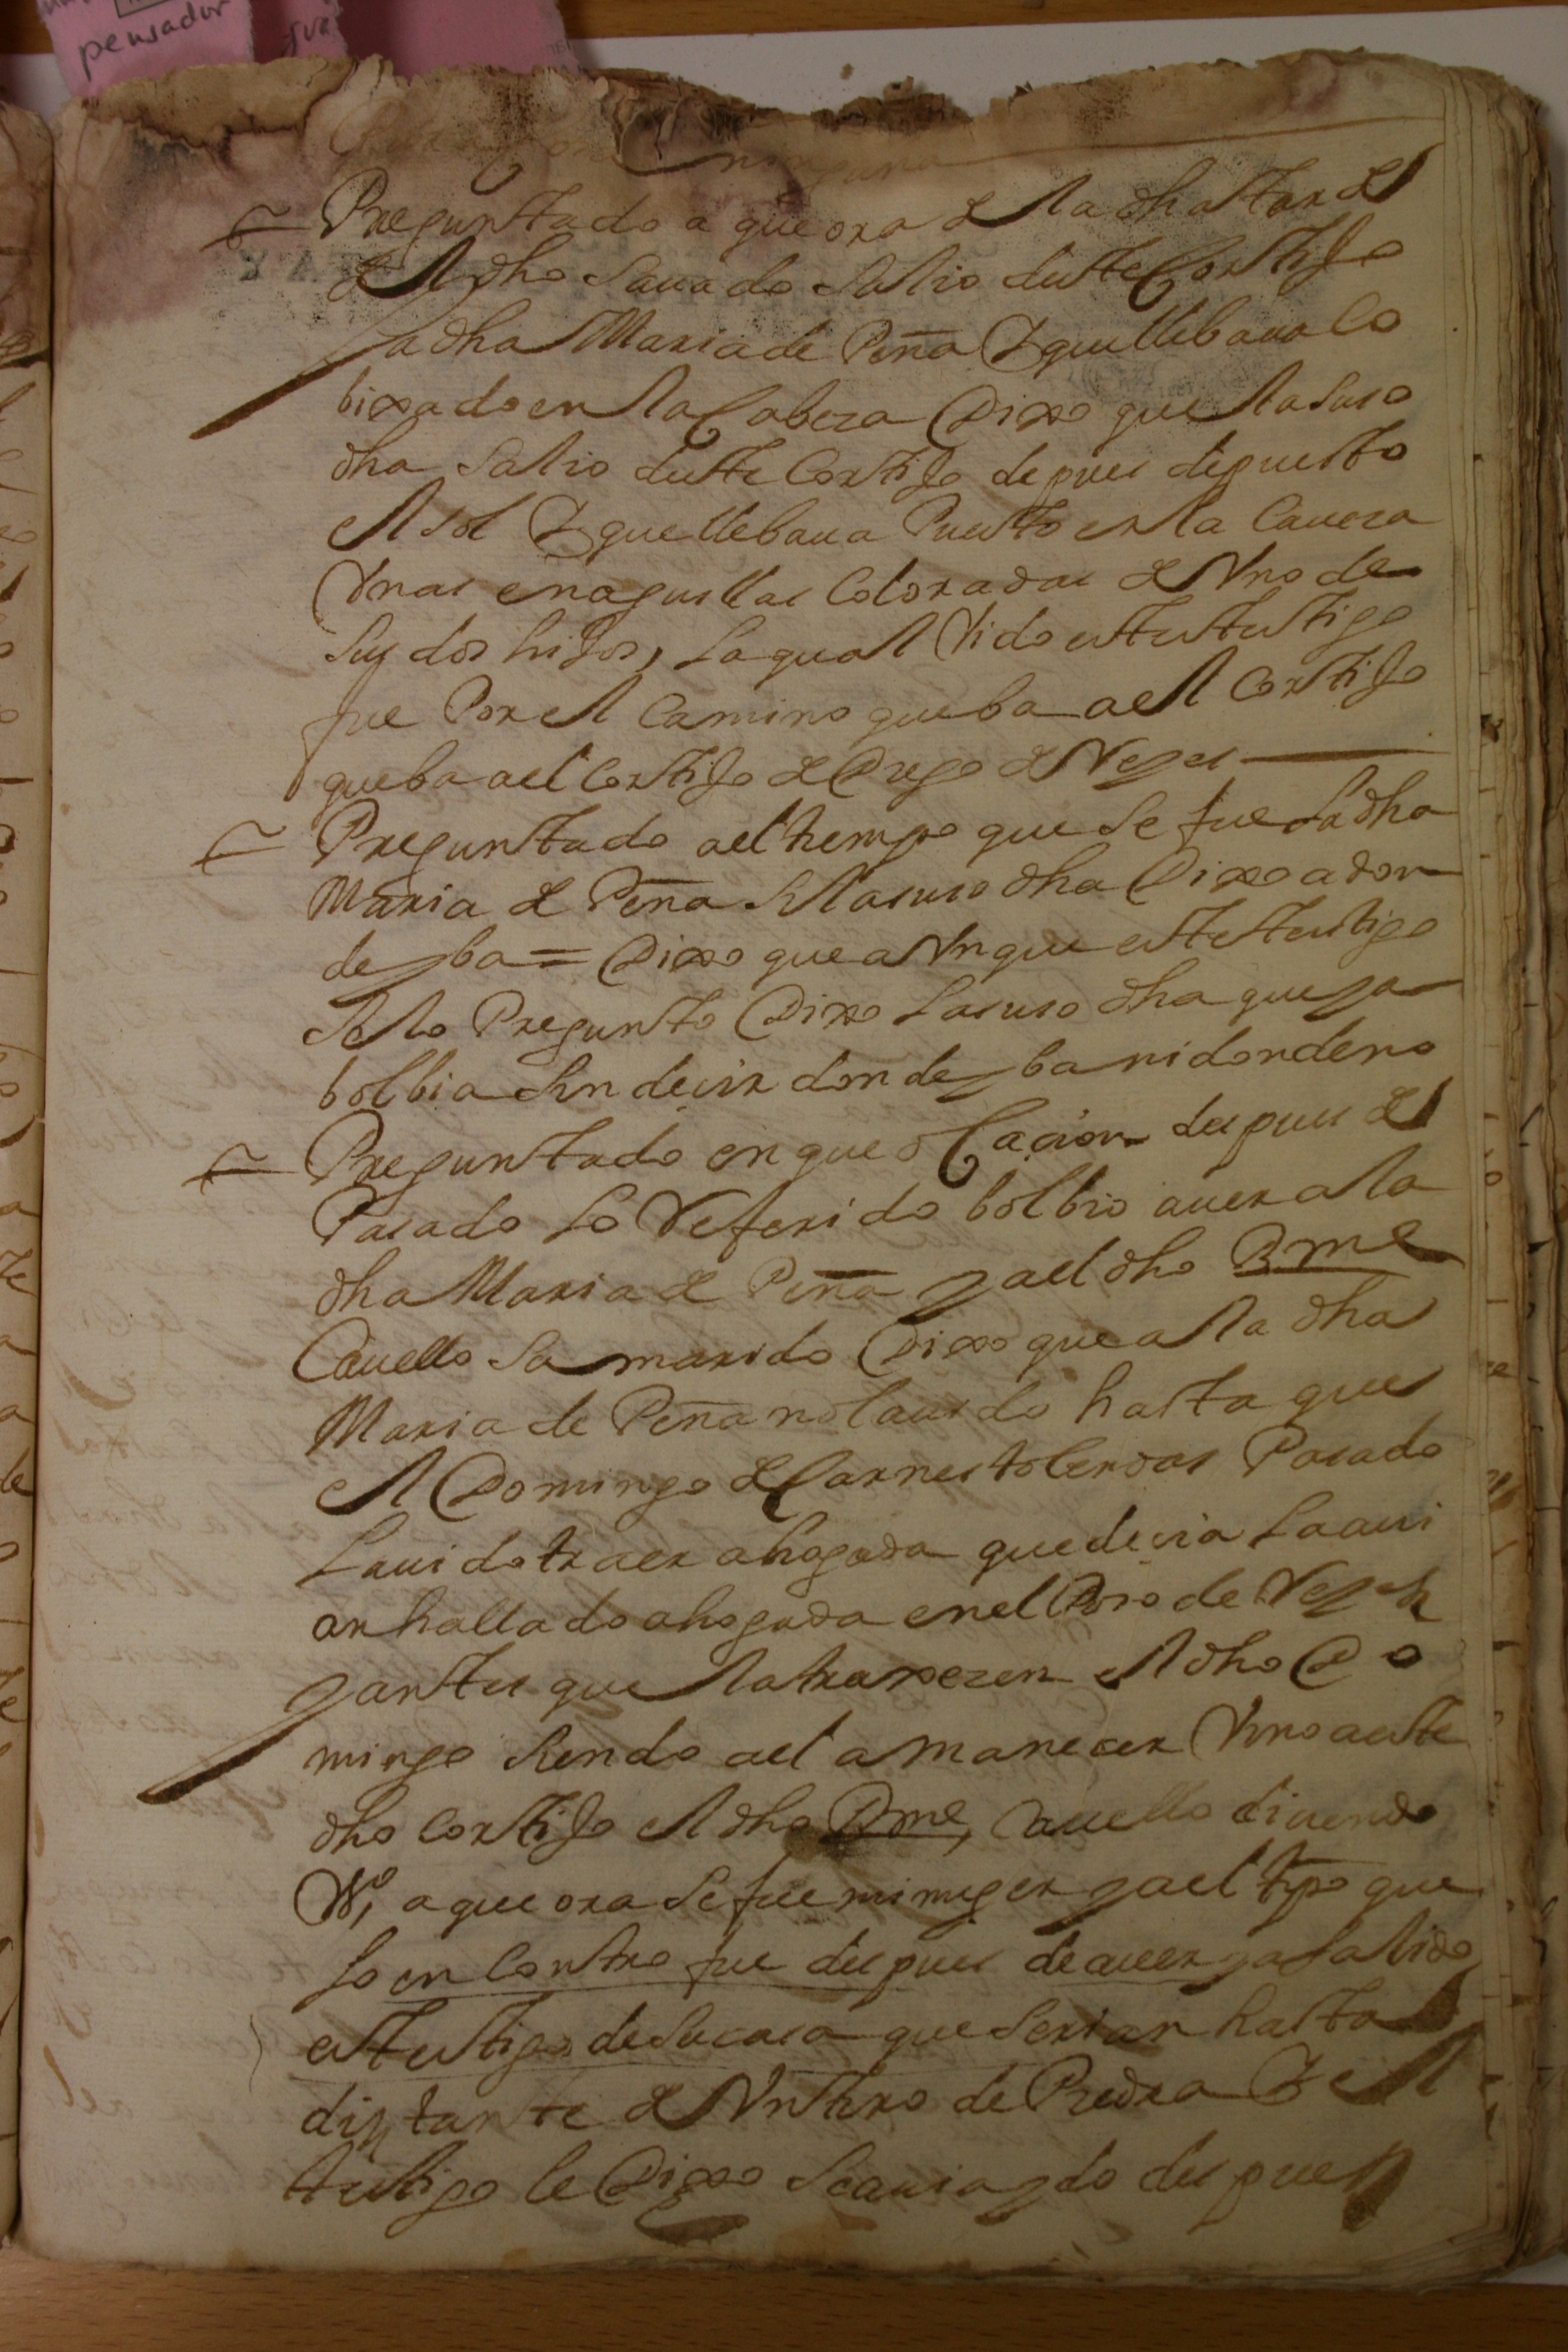 pensador
ninguna
Preguntado a que ora de la dha tarde
del dho Sauado Salio deste Cortijo
la dha Maria de Peña Y que llebaua Co
bixado en la Cabeza Dixo que la suso
dha Salio deste Cortijo depues depuesto
el sol Y que llebaua Puesto en la Caueza
Vnas enaguillas Coloradas de Vno de
Sus dos hijos, la qual Vido este testigo
fue Por el Camino que ba a el Cortijo
que ba a el Cortijo de Diego de Veges
Preguntado a el tiempo que Se fue la dha
Maria de Peña Si la suso dha Dixo a don
de yba = Dixo que a Vnque este testigo
Se lo Pregunto Dixo la suso dha que ya
bolbia Sin decir donde yba ni donde no
Preguntado en que ocacion despues de
Pasado lo Referido bolbio a uer a la
dha Maria de Peña y a el dho Bme
Cauello Su marido Dixo que a la dha
Maria de Peña no la uido hasta que
el Domingo de Carnestolendas Pasado
la uido traer ahogada que decia la aui
an hallado ahogada en el Poso de Veges
y antes que la traxezen el dho Do
mingo Siendo a el amanecer Vino a este
dho Cortijo el dho Bme, Cauello diciendo
a que ora Se fue mi muger y a el tpo que
lo encontro fue despues de auer ya salido
este testigo de su casa que Serian hasta
distante de Vn tiro de Piedra Y el
testigo le Dixo Se auia ydo despues